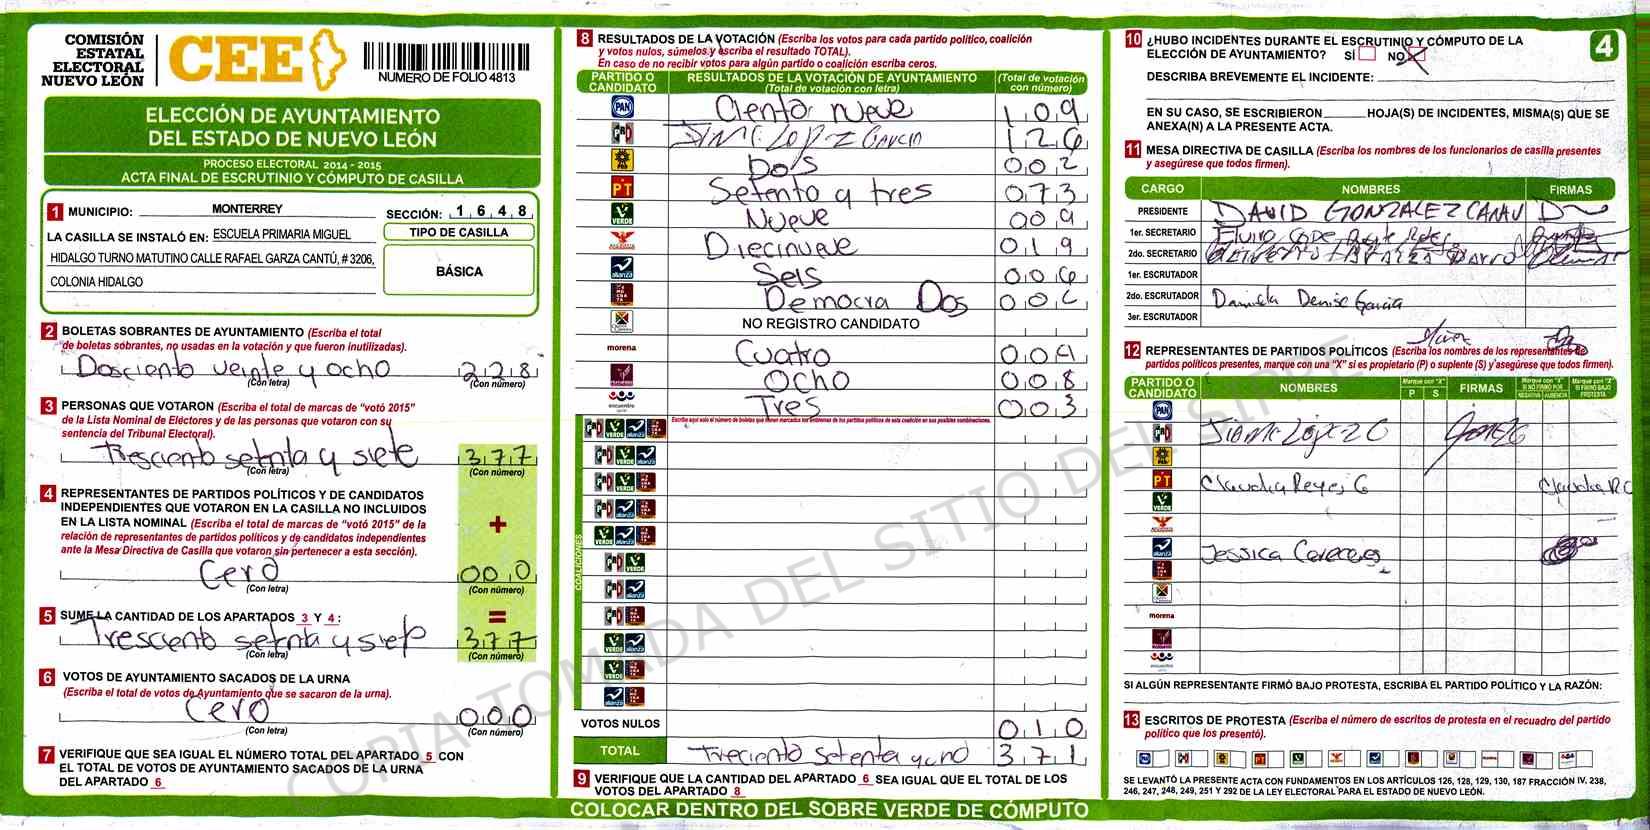 COMISIÓN
ESTATAL
ELECTORAL
NUEVO LEÓN
CEE
NUMERO DE FOLIO 4813
ELECCIÓN DE AYUNTAMIENTO
DEL ESTADO DE NUEVO LEÓN
PROCESO ELECTORAL 2014 - 2015
ACTA FINAL DE ESCRUTINIO Y CÓMPUTO DE CASILLA
1 MUNICIPIO: MONTERREY
SECCIÓN: 1 6 4 8
LA CASILLA SE INSTALÓ EN: ESCUELA PRIMARIA MIGUEL
HIDALGO TURNO MATUTINO CALLE RAFAEL GARZA CANTÚ, # 3206,
COLONIA HIDALGO
TIPO DE CASILLA
BÁSICA
2 BOLETAS SOBRANTES DE AYUNTAMIENTO (Escriba el total
de boletas sobrantes, no usadas en la votación y que fueron inutilizadas).
Dosciento veinte y ocho 2 2 8
(Con letra) (Con número)
3 PERSONAS QUE VOTARON (Escriba el total de marcas de “votó 2015”
de la Lista Nominal de Electores y de las personas que votaron con su
sentencia del Tribunal Electoral).
Tresciento setenta y siete 3 7 7
(Con letra) (Con número)
4 REPRESENTANTES DE PARTIDOS POLÍTICOS Y DE CANDIDATOS
INDEPENDIENTES QUE VOTARON EN LA CASILLA NO INCLUIDOS
EN LA LISTA NOMINAL (Escriba el total de marcas de “votó 2015” de la
relación de representantes de partidos políticos y de candidatos independientes
ante la Mesa Directiva de Casilla que votaron sin pertenecer a esta sección).
+
Cero 0 0 0
(Con letra) (Con número)
5 SUME LA CANTIDAD DE LOS APARTADOS 3 Y 4 :
=
Tresciento setenta y siete 3 7 7
(Con letra) (Con número)
6 VOTOS DE AYUNTAMIENTO SACADOS DE LA URNA
(Escriba el total de votos de Ayuntamiento que se sacaron de la urna).
Cero 0 0 0
(Con letra) (Con número)
7 VERIFIQUE QUE SEA IGUAL EL NÚMERO TOTAL DEL APARTADO 5 CON
EL TOTAL DE VOTOS DE AYUNTAMIENTO SACADOS DE LA URNA
DEL APARTADO 6
8 RESULTADOS DE LA VOTACIÓN (Escriba los votos para cada partido político, coalición
y votos nulos, súmelos y escriba el resultado TOTAL).
En caso de no recibir votos para algún partido o coalición escriba ceros.
PARTIDO O CANDIDATO RESULTADOS DE LA VOTACIÓN DE AYUNTAMIENTO (Total de votación con letra) (Total de votación con número)
PAN Ciento nueve 1 0 9
PRI 1 2 6
PRD Dos 0 0 2
PT Setenta y tres 0 7 3
VERDE Nueve 0 0 9
Diecinueve 0 1 9
alianza Seis 0 0 6
Democra Dos 0 0 2
NO REGISTRO CANDIDATO
morena Cuatro 0 0 4
Ocho 0 0 8
encuentro Tres 0 0 3
COALICIONES
Escriba aquí solo el número de boletas que tienen marcados los emblemas de los partidos políticos de esta coalición en sus posibles combinaciones.
VOTOS NULOS 0 1 0
TOTAL Treciento setenta y uno 3 7 1
9 VERIFIQUE QUE LA CANTIDAD DEL APARTADO 6 SEA IGUAL QUE EL TOTAL DE LOS
VOTOS DEL APARTADO 8
COLOCAR DENTRO DEL SOBRE VERDE DE CÓMPUTO
4
10 ¿HUBO INCIDENTES DURANTE EL ESCRUTINIO Y CÓMPUTO DE LA
ELECCIÓN DE AYUNTAMIENTO? SÍ NO X
DESCRIBA BREVEMENTE EL INCIDENTE:
EN SU CASO, SE ESCRIBIERON HOJA(S) DE INCIDENTES, MISMA(S) QUE SE
ANEXA(N) A LA PRESENTE ACTA.
11 MESA DIRECTIVA DE CASILLA (Escriba los nombres de los funcionarios de casilla presentes
y asegúrese que todos firmen).
CARGO NOMBRES FIRMAS
PRESIDENTE DAVID GONZALEZ
1er. SECRETARIO
2do. SECRETARIO
1er. ESCRUTADOR
2do. ESCRUTADOR Daniela Denise Garcia
3er. ESCRUTADOR
12 REPRESENTANTES DE PARTIDOS POLÍTICOS (Escriba los nombres de los representantes de
partidos políticos presentes, marque con una “X” si es propietario (P) o suplente (S) y asegúrese que todos firmen).
PARTIDO O CANDIDATO NOMBRES Marque con “X” P S FIRMAS Marque con “X” SI NO FIRMÓ POR NEGATIVA AUSENCIA Marque con “X” SI FIRMÓ BAJO PROTESTA
PAN
PRI
PRD
PT Claudia Reyes G Claudia R.G
VERDE
alianza Jessica
morena
encuentro
SI ALGÚN REPRESENTANTE FIRMÓ BAJO PROTESTA, ESCRIBA EL PARTIDO POLÍTICO Y LA RAZÓN:
13 ESCRITOS DE PROTESTA (Escriba el número de escritos de protesta en el recuadro del partido
político que los presentó).
SE LEVANTÓ LA PRESENTE ACTA CON FUNDAMENTOS EN LOS ARTÍCULOS 126, 128, 129, 130, 187 FRACCIÓN IV, 238,
246, 247, 248, 249, 251 Y 292 DE LA LEY ELECTORAL PARA EL ESTADO DE NUEVO LEÓN.
COPIA TOMADA DEL SITIO DEL SIPRE